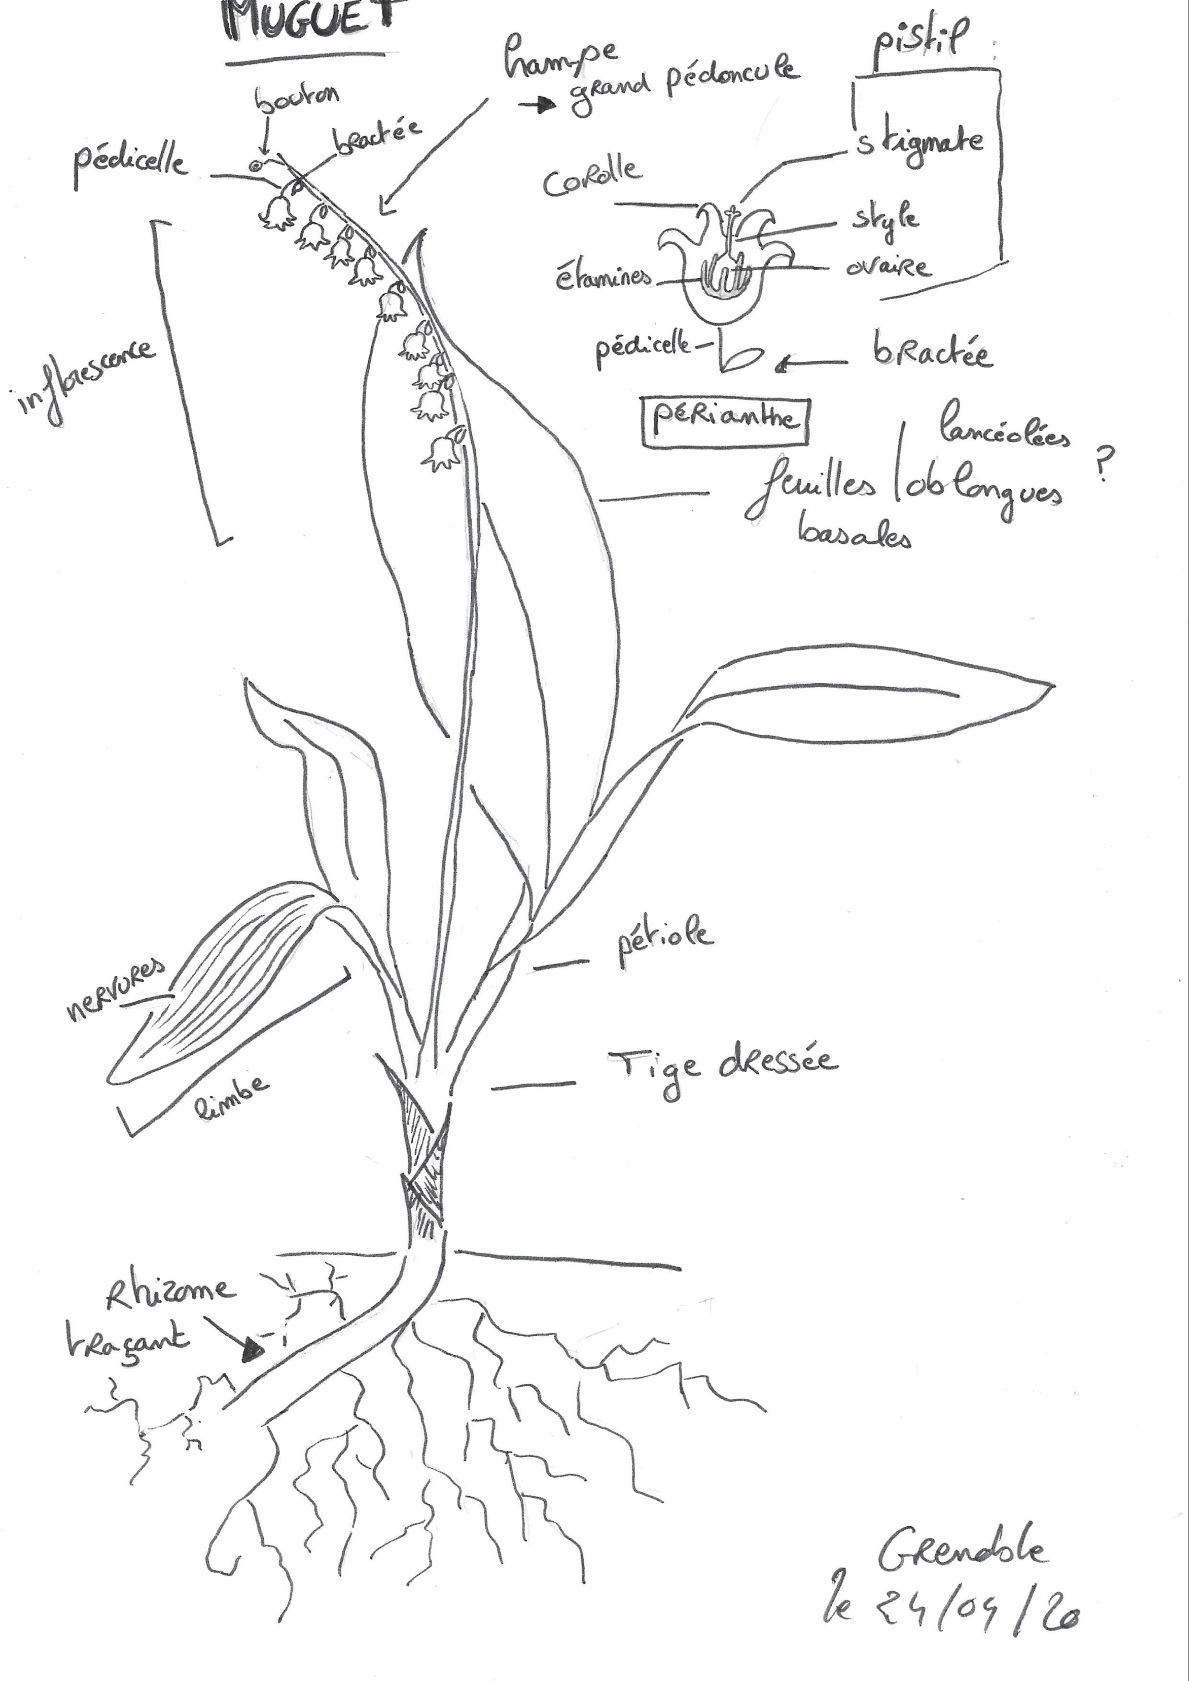 MUGUET
hampe
→ grand pédoncule
pistil
bouton
bractée
pédicelle
stigmate
corolle
style
étamines
ovaire
pédicelle
bractée
périanthe
inflorescence
lancéolées
feuilles / oblongues ?
basales
pétiole
nervures
limbe
Tige dressée
Rhizome
traçant
Grenoble
le 24/04/20